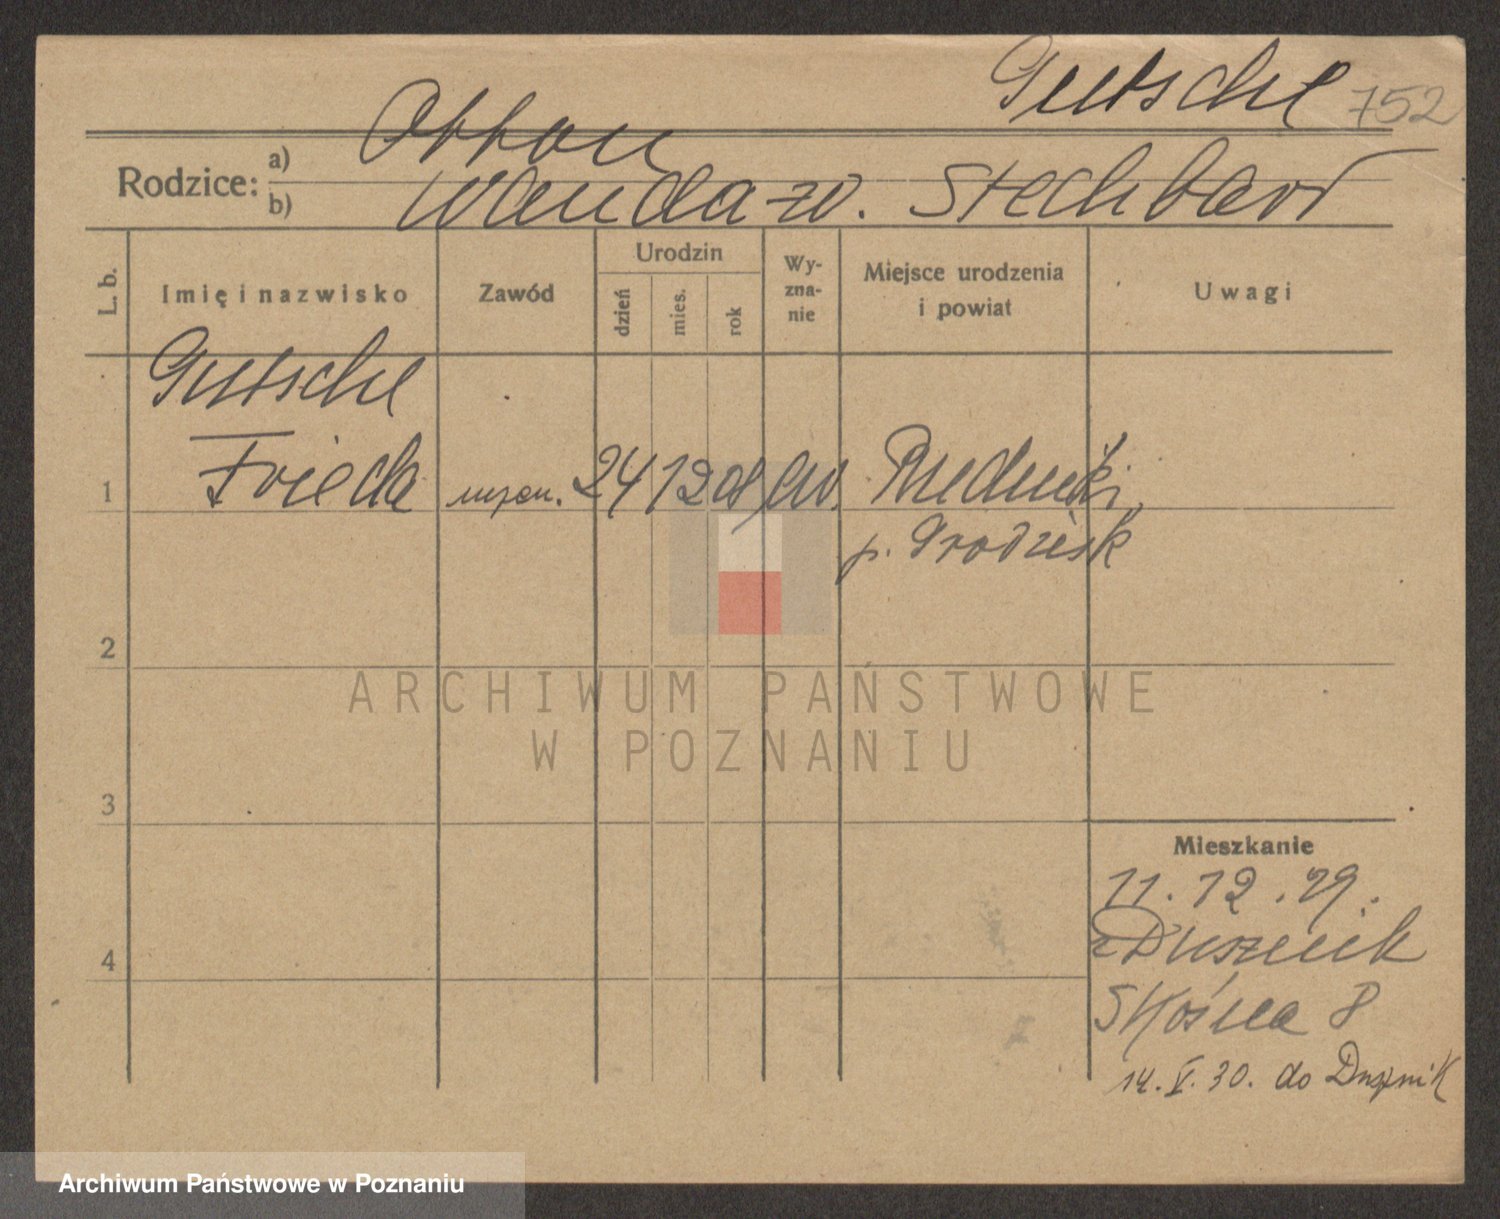 Gutsche 752
Rodzice: a) Otton
b) Wanda zd. Stechbart
L. b.
Imię i nazwisko
Zawód
Urodzin
dzień
mies.
rok
Wy-
zna-
nie
Miejsce urodzenia
i powiat
Uwagi
Gutsche
1 Frieda 24 12 08 ew. Rudniki
p. Grodzisk
2
3
4
Mieszkanie
11. 12. 29.
z Dusznik
Skośna 8
14. V. 30. do Dusznik
ARCHIWUM PAŃSTWOWE
W POZNANIU
Archiwum Państwowe w Poznaniu